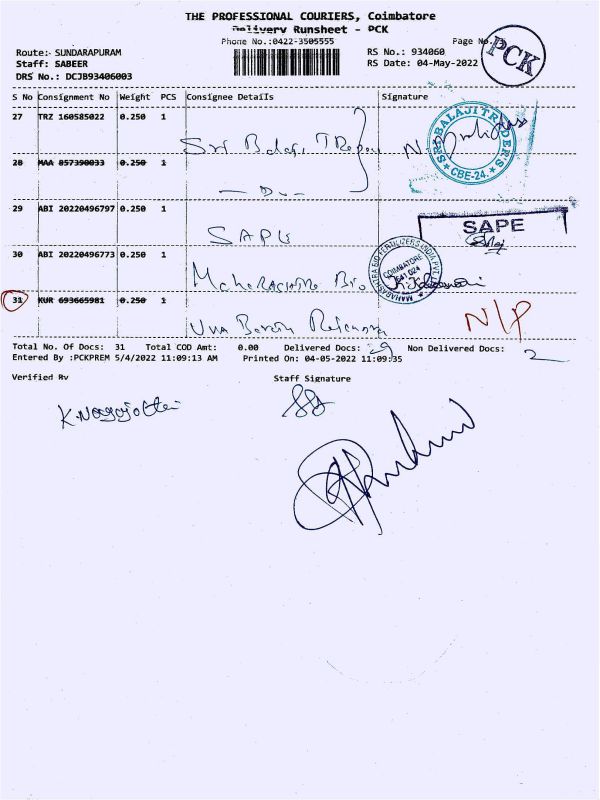 THE PROFESSIONAL COURIERS, Coimbatore
Delivery Runsheet - PCK
Phone No.:0422-3505555
Page No.
PCK
Route:- SUNDARAPURAM
RS No.: 934060
Staff: SABEER
RS Date: 04-May-2022
DRS No.: DCJB93406003
S No Consignment No Weight PCS Consignee Details Signature
27 TRZ 160585022 0.250 1
Sri Balaji
SRI BALAJI TRADERS
* CBE-24. *
28 MAA 857390033 0.250 1
- Do -
29 ABI 20220496797 0.250 1
SAPE
SAPE
30 ABI 20220496773 0.250 1
Maharashtra Bio
MAHARASHTRA BIO FERTILIZERS INDIA PVT. LTD
COIMBATORE
641 024
31 KUR 693665981 0.250 1
N/P
Total No. Of Docs: 31 Total COD Amt: 0.00 Delivered Docs: 29 Non Delivered Docs: 2
Entered By :PCKPREM 5/4/2022 11:09:13 AM Printed On: 04-05-2022 11:09:35
Verified By Staff Signature